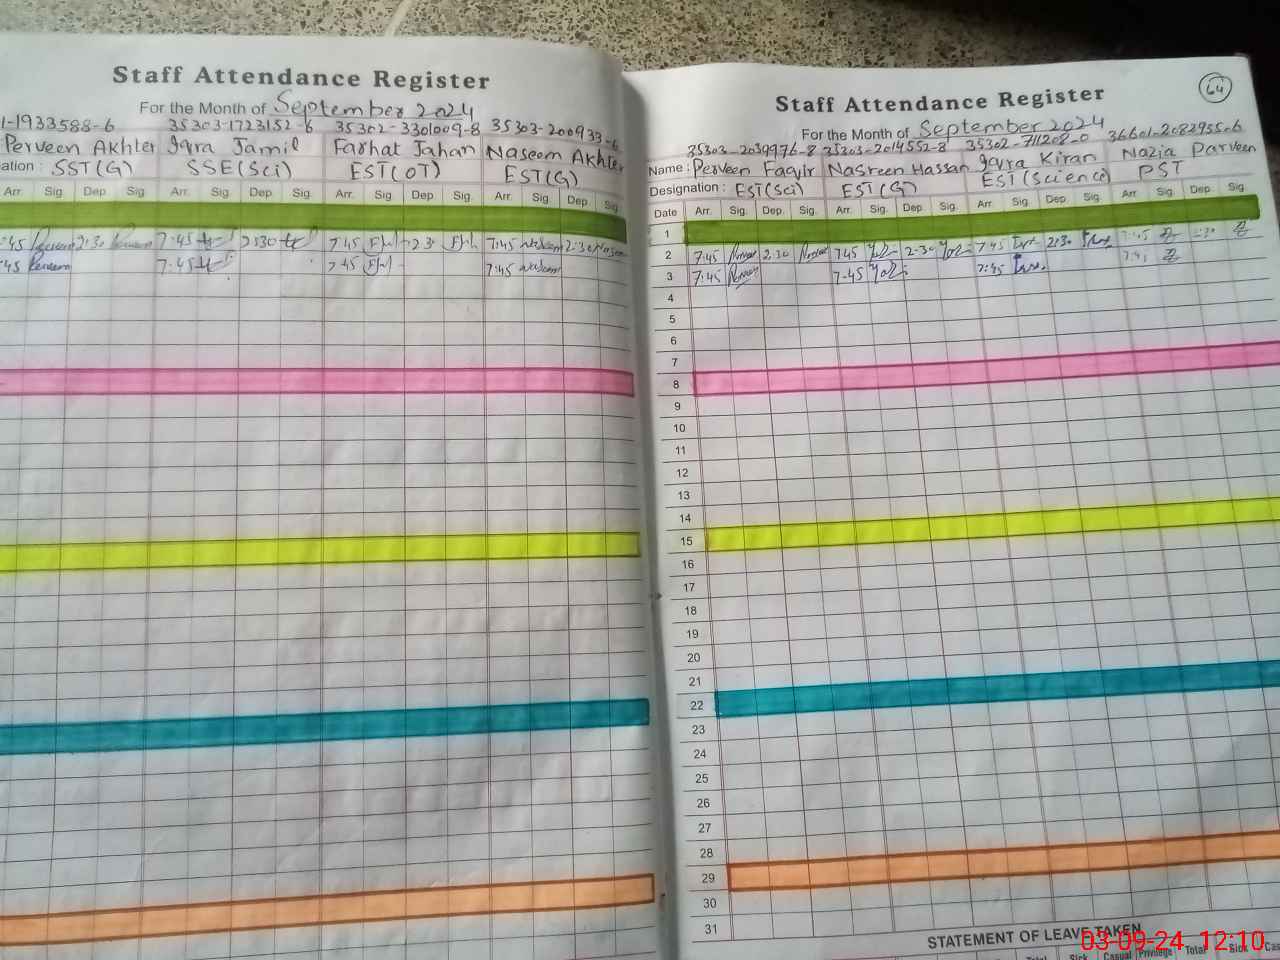 Staff Attendance Register
For the Month of September 2024
1-1933588-6 35303-1723152-6 35302-3301009-8 35303-200933-6
Perveen Akhter Iqra Jamil Farhat Jahan Naseem Akhter
ation : SST(G) SSE(Sci) EST(OT) EST(G)
Arr. Sig. Dep. Sig. Arr. Sig. Dep. Sig. Arr. Sig. Dep. Sig. Arr. Sig. Dep. Sig.
:45 2:30 7:45 2:30 7:45 2:30 7:45 2:30
:45 7:45 7:45 7:45
64
Staff Attendance Register
For the Month of September 2024
35303-2039976-8 35303-2014552-8 35302-711208-0 36601-2082955-6
Name : Perveen Faqir Nasreen Hassan Iqra Kiran Nazia Parveen
Designation : EST(Sci) EST(G) EST(Science) PST
Date Arr. Sig. Dep. Sig. Arr. Sig. Dep. Sig. Arr. Sig. Dep. Sig. Arr. Sig. Dep. Sig.
1
2 7:45 2:30 7:45 2:30 7:45 2:30 7:45 2:30
3 7:45 7:45 7:45 7:45
4
5
6
7
8
9
10
11
12
13
14
15
16
17
18
19
20
21
22
23
24
25
26
27
28
29
30
31
STATEMENT OF LEAVE TAKEN
Total Sick Casual Privilege Total Sick Cas
03-09-24 12:10